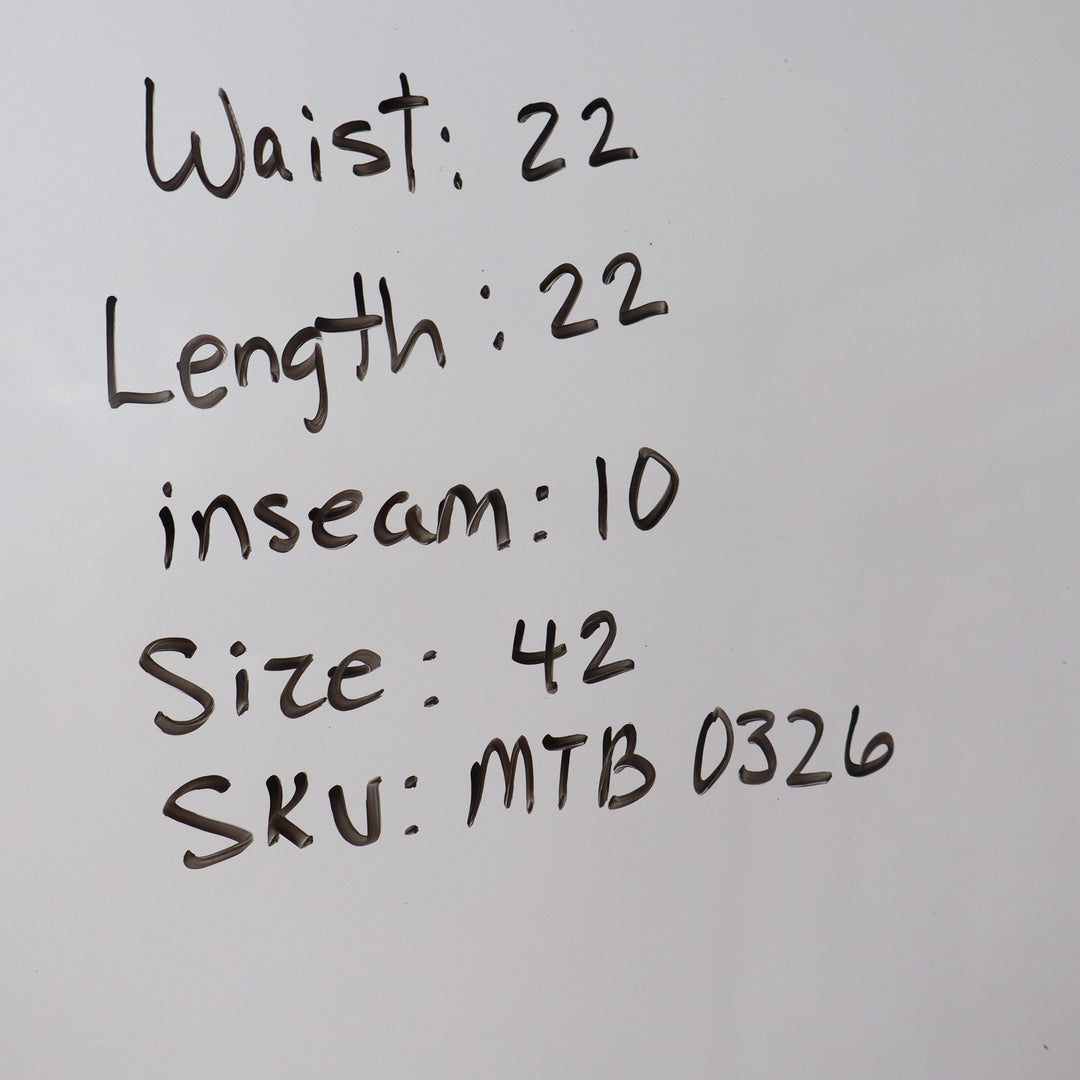 Waist: 22
Length: 22
inseam: 10
Size: 42
SKU: MTB 0326